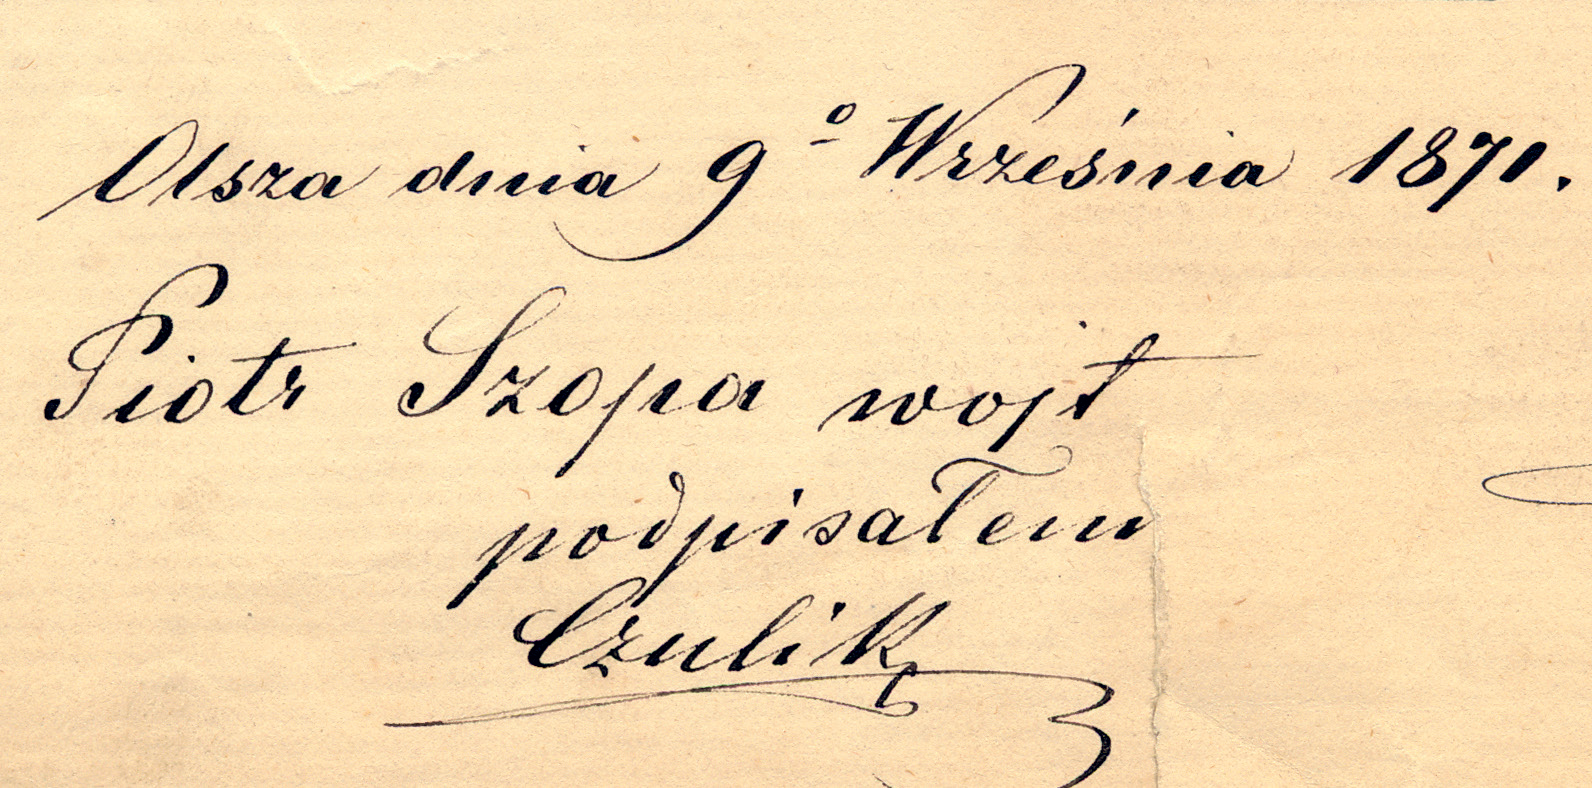 Olsza dnia 9º Września 1871.
Piotr Szopa wojt
podpisałem
Czulik